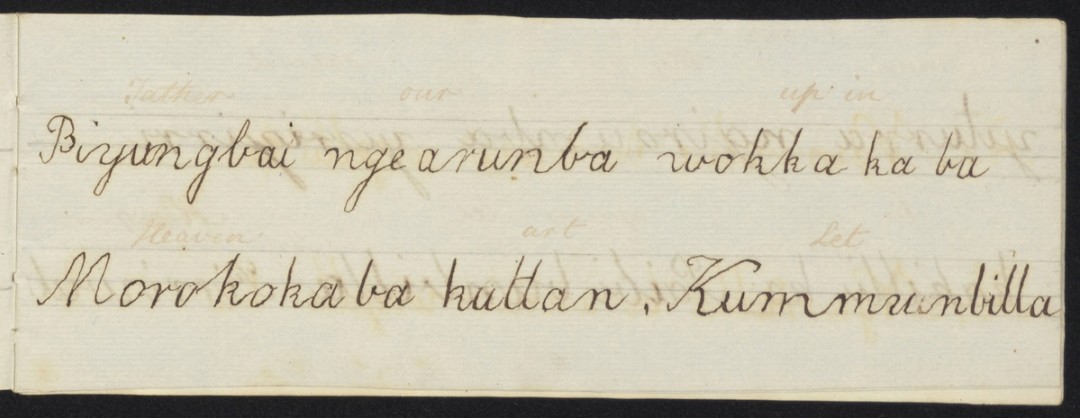 Father our up in
Biyungbai ngearunba wokka ka ba
Heaven art Let
Morokoka ba kattan, Kummunbilla